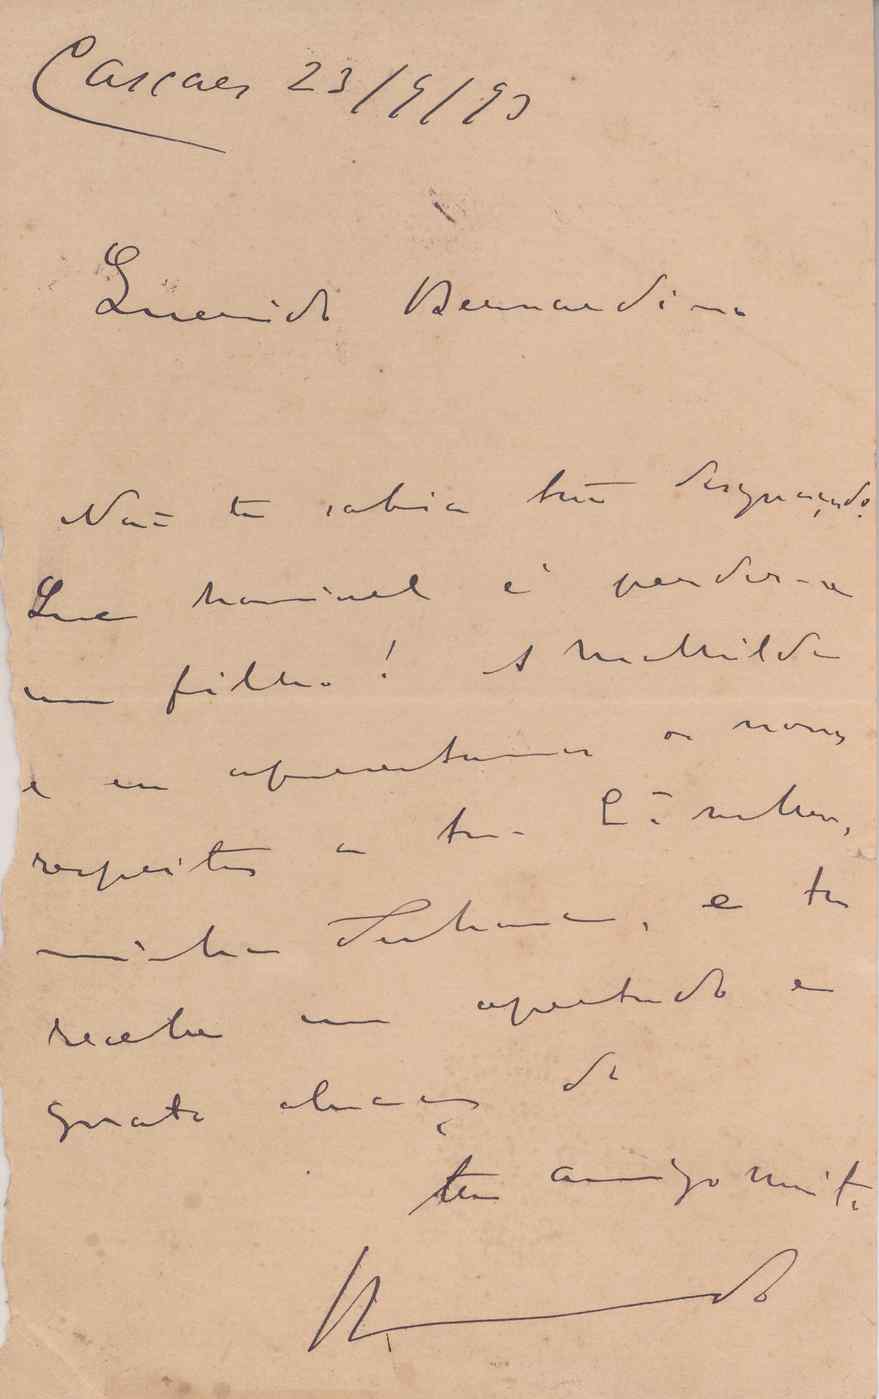 Cascaes 23/9/93
Querido Bernardino
Não te sabia tão desgraçado.
Que horrivel é perder-se
um filho! A Mathilde
e eu apresentamos os nossos
respeitos a tua Ex.ma mulher,
minha Senhora, e tu
recebe um apertado e
grato abraço de
teu amigo muito